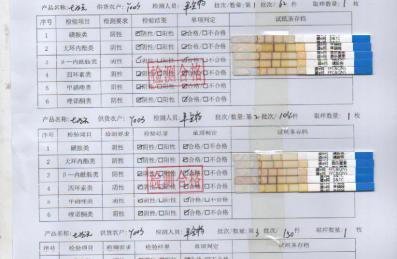 产品名称: 供货农户: Y003 检测人员: 批次/数量:第 1 批次/ 枚 取样数量: 1 枚
序号 检验项目 检测要求 检验结果 单项判定 试纸条存档
1 磺胺类 阴性 ☑阴性/☐阳性 ☑合格/☐不合格
2 大环内酯类 阴性 ☑阴性/☐阳性 ☑合格/☐不合格
3 β-内酰胺类 阴性 ☑阴性/☐阳性 ☑合格/☐不合格
4 四环素类 阴性 ☑阴性/☐阳性 ☑合格/☐不合格
5 甲硝唑类 阴性 ☑阴性/☐阳性 ☑合格/☐不合格
6 喹诺酮类 阴性 ☑阴性/☐阳性 ☑合格/☐不合格
检测合格
产品名称: 供货农户: Y003 检测人员: 批次/数量:第 2 批次/ 枚 取样数量: 1 枚
序号 检验项目 检测要求 检验结果 单项判定 试纸条存档
1 磺胺类 阴性 ☑阴性/☐阳性 ☑合格/☐不合格
2 大环内酯类 阴性 ☑阴性/☐阳性 ☑合格/☐不合格
3 β-内酰胺类 阴性 ☑阴性/☐阳性 ☑合格/☐不合格
4 四环素类 阴性 ☑阴性/☐阳性 ☑合格/☐不合格
5 甲硝唑类 阴性 ☑阴性/☐阳性 ☑合格/☐不合格
6 喹诺酮类 阴性 ☑阴性/☐阳性 ☑合格/☐不合格
检测合格
产品名称: 供货农户: Y003 检测人员: 批次/数量:第 3 批次/ 130 枚 取样数量: 1 枚
序号 检验项目 检测要求 检验结果 单项判定 试纸条存档
1 磺胺类 阴性 ☑阴性/☐阳性 ☑合格/☐不合格